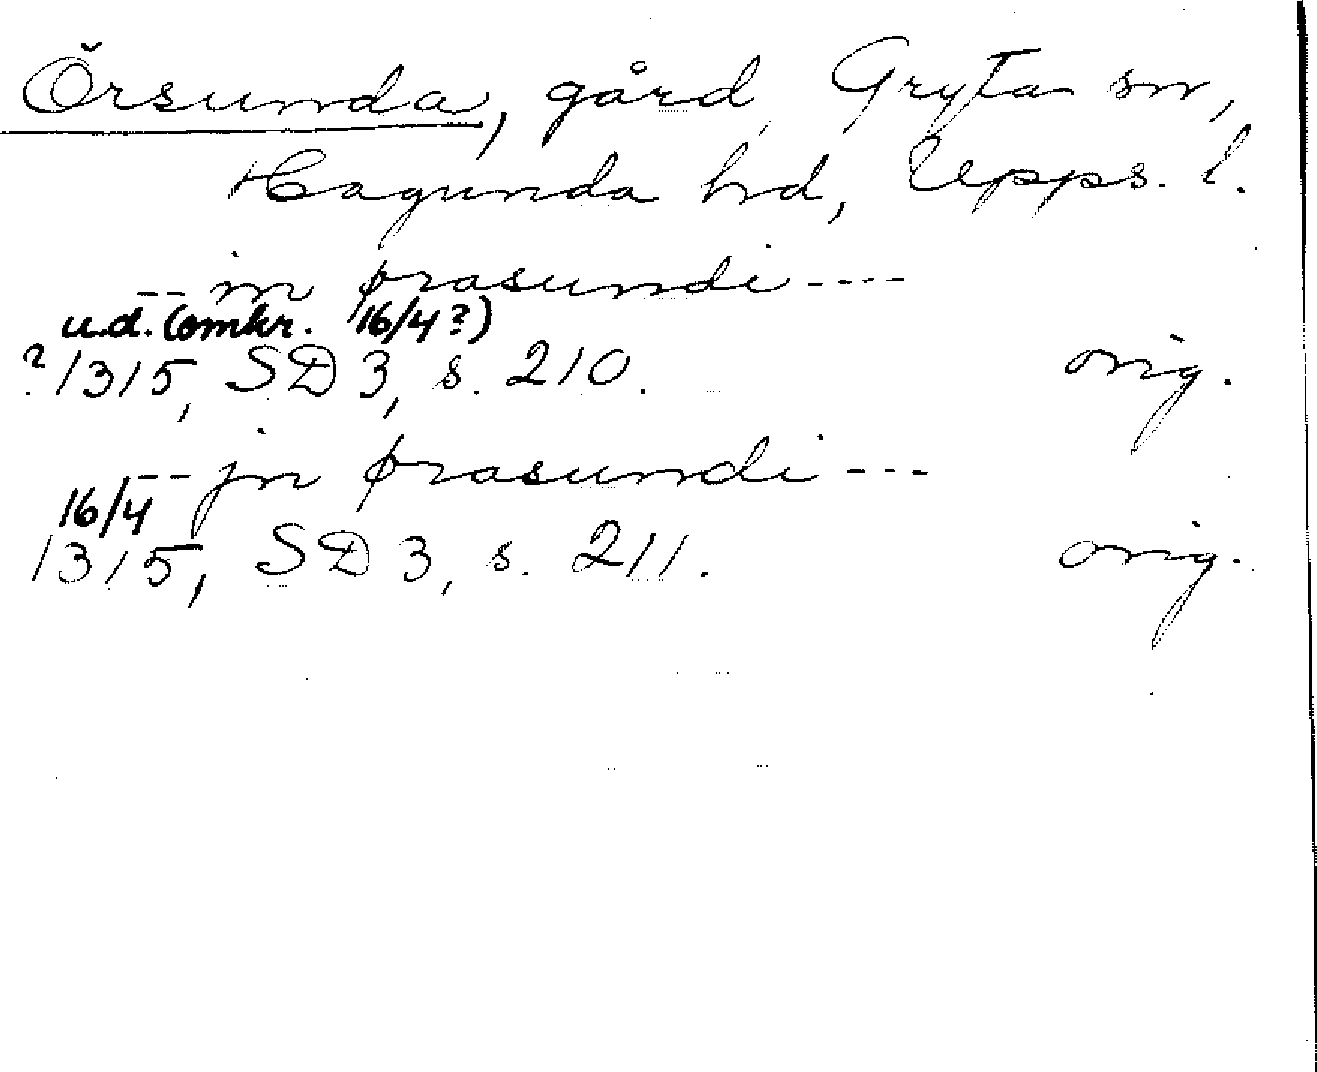 Örsunda, gård, Gryta sn,
Hagunda hd, Upps. l.
-- in ørasundi ----
u.d. (omkr. 16/4?)
? 1315, SD 3, s. 210. orig.
-- jn ørasundi ---
16/4
1315, SD 3, s. 211. orig.